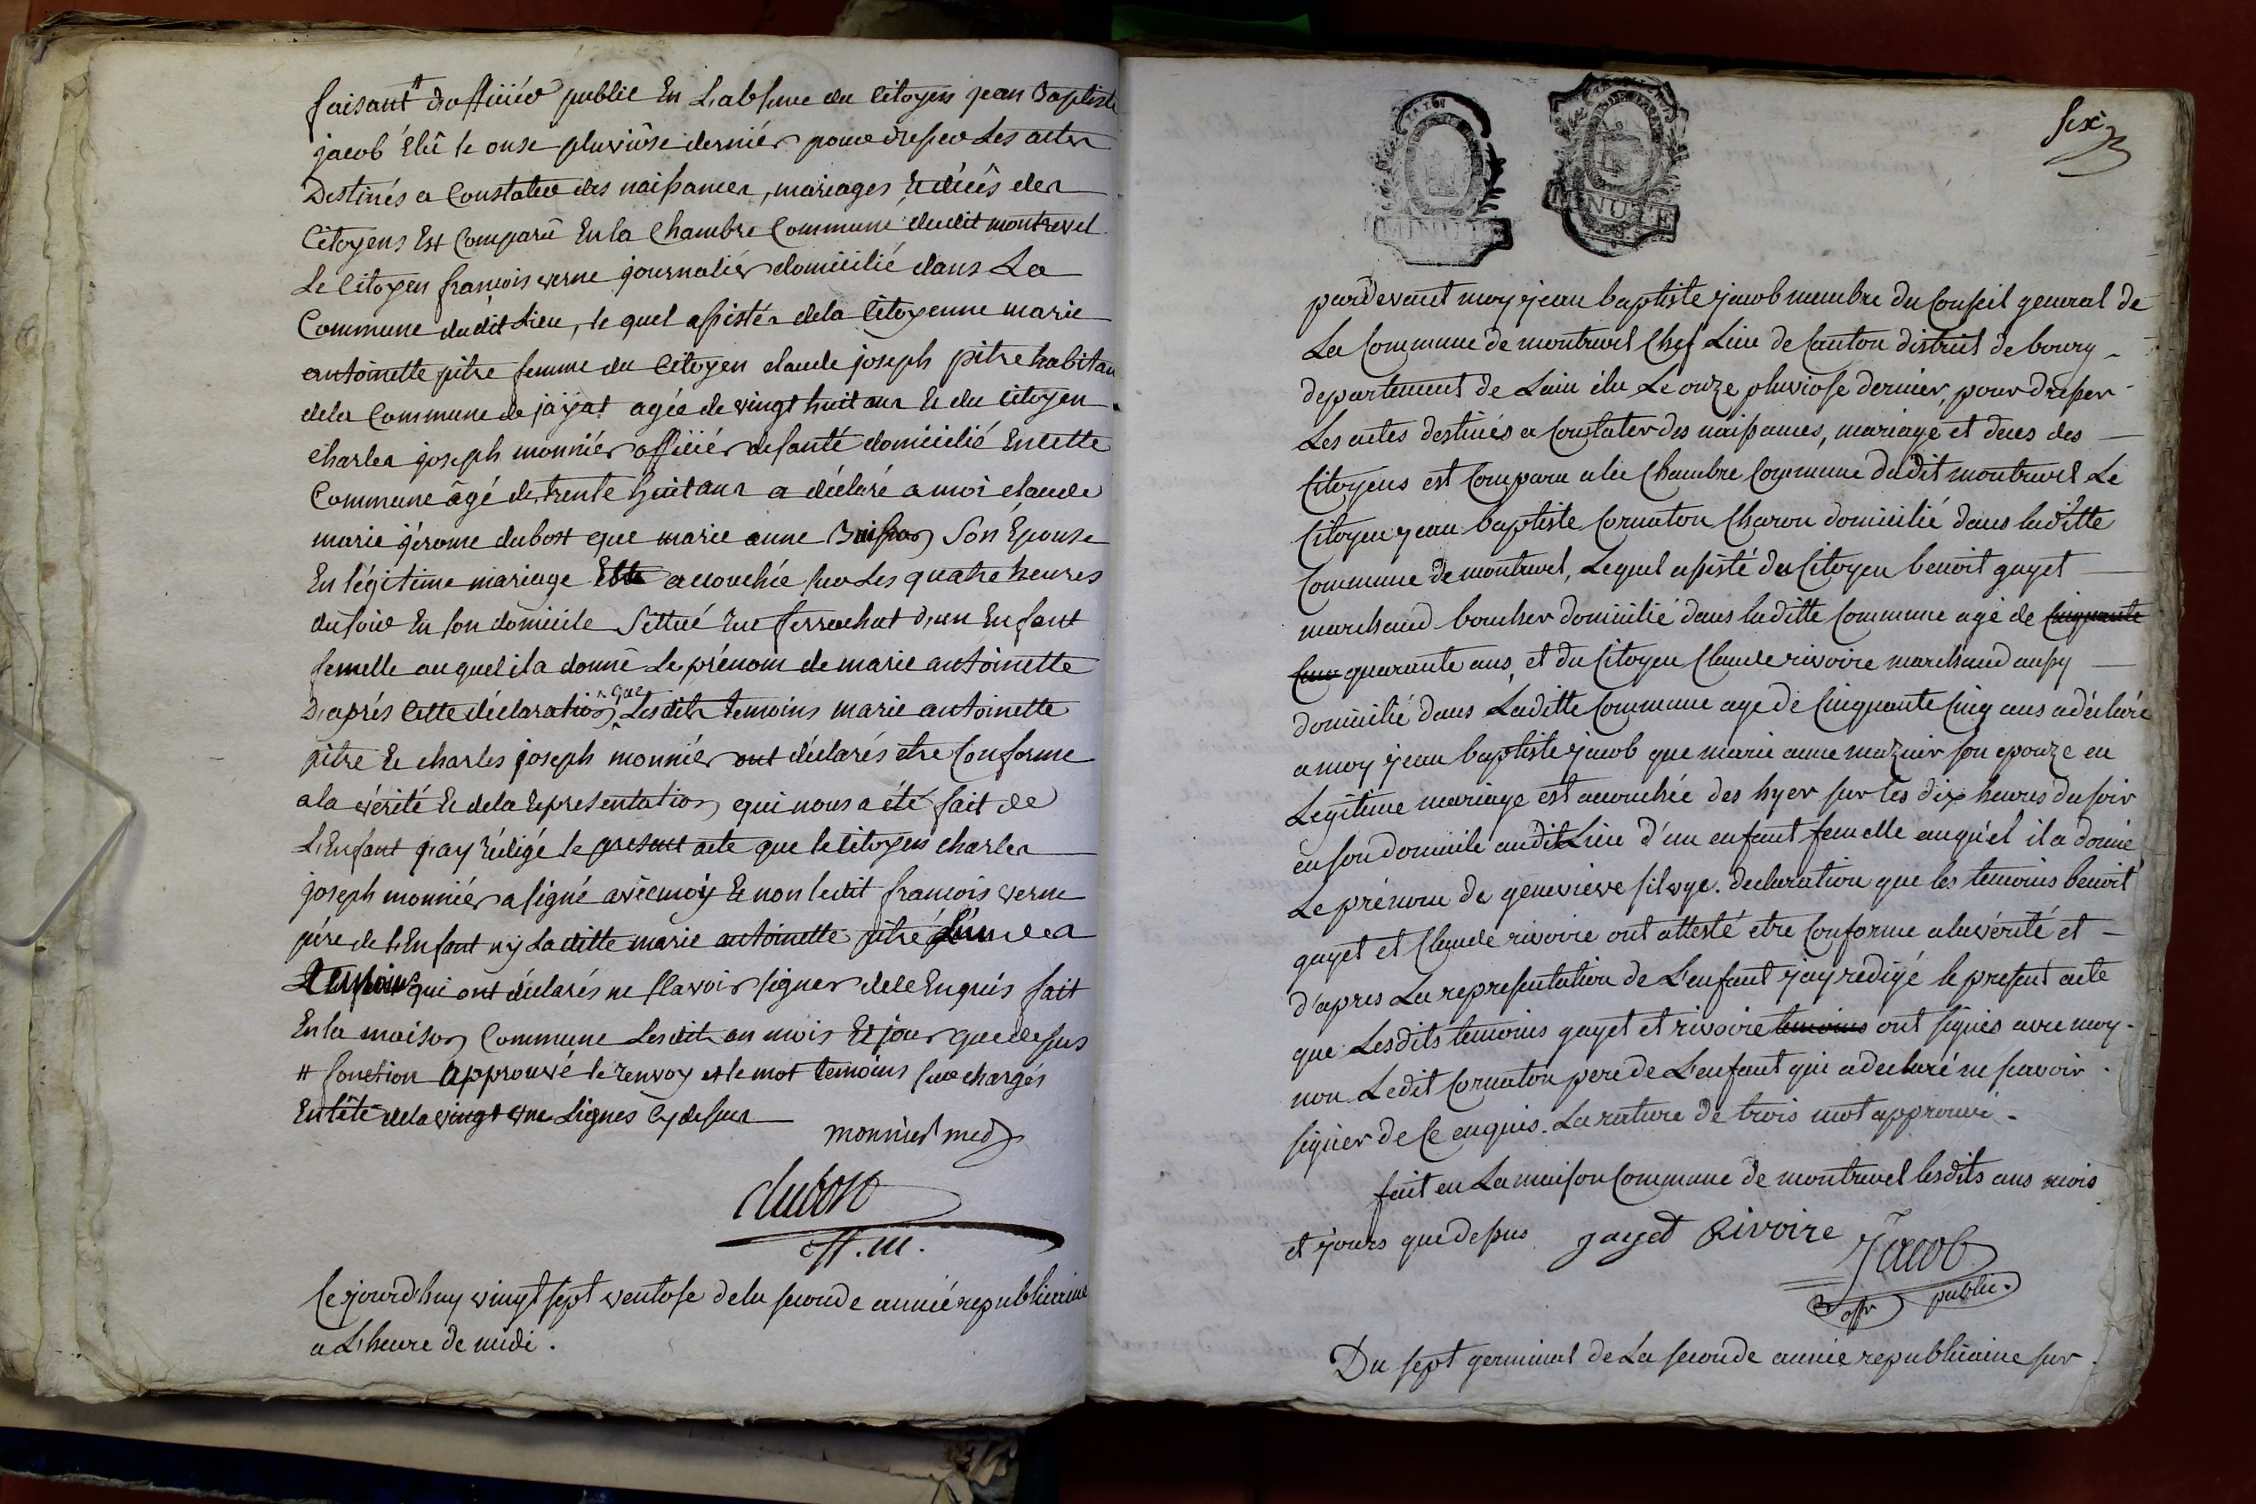 faisant # d'officier public En L'absence du Citoyen jean Baptiste
jacob Élû le onse pluviôse derniér pour dresser Les actes
Destinés a Constater des naissances, mariages, Et décès des
Citoyens Est Comparû En la Chambre Commune dudit montrevel
Le Citoyen françois verne journaliér domicilié dans La
Commune dudit Lieu, le quel assistér dela Citoyenne marie
antoinette pitre femme du Citoyen claude joseph pitre habitan
dela Commune de jaÿat agée de vingt huit ans Et du Citoyen
charles joseph monniér officiér de santé domicilié En cette
Commune âgé de trente huit ans a déclaré a moi claude
marie jérome dubost que marie anne Son Épouse
En légitime mariage Este accouchée sur Les quatre heures
du soir En son domicile Sittué rue ferrachat d'un Enfant
femelle au quel il a donné Le prénom de marie antoinette
D'aprés Cette déclaration que Les dits temoins marie antoinette
pitre Et charles joseph monniér ont déclarés etre Conforme
a la vérité Et dela représentation qui nous a été fait de
L'Enfant j'ay rédigé le présent acte que le Citoyen charles
joseph monniér a signé avec moy Et non ledit francois verne
pére de l'Enfant ny La ditte marie antoinette pitre l'un des
temoins qui ont déclarés ne sçavoir signer de ce Enquis fait
En la maison Commune Les dits an mois Et jour que dessus
# fonction approuvé le renvoy et le mot temoins surchargés
En tête dela vingt une Lignes Cy dessus
monnier med
dubost
off. m.
Ce jourd'huy vingt sept ventose dela seconde année republicaine
a L'heure de midi.
six
MINUTE
MINUTE
pardevant moy jean baptiste jacob membre du Conseil general de
La Commune de montrevel Chef Lieu de Canton district de bourg
departement de Lain élu Le onze pluviose dernier, pour dresser
Les actes destinés a Constater des naissances, mariage et deces des
Citoyens est Comparu a la Chambre Commune dudit montrevel Le
Citoyen jean baptiste Cornaton Charon domicilié dans laditte
Commune de montrevel, Lequel assisté du Citoyen benoit gayet
marchand boucher domicilié dans laditte Commune agé de Cinquante
Cinq quarante ans, et du Citoyen Claude rivoire marchand aussy
domicilié dans Laditte Commune age de Cinquante Cinq ans a déclaré
a moy jean baptiste jacob que marie anne mazuir son epouze en
Legitime mariage est accouchée des hyer sur les dix heures du soir
en son domicile audit Lieu d'un enfant femelle auquel il a donné
Le prénom de genevieve silvye. declaration que les temoins benoit
gayet et Claude rivoire ont attesté etre Conforme a la vérité et
d'apres La representation de L'enfant j'ay redigé le present acte
que Lesdits temoins gayet et rivoire temoins ont signés avec moy
non Ledit Cornaton pere de L'enfant qui a declaré ne scavoir
signer de Ce enquis. La rature de trois mot approuvé
fait en La maison Commune de montrevel lesdits ans mois
et jours que dessus gayet Rivoire Jacob
offr public.
Du sept germinal de La seconde année republicaine sur